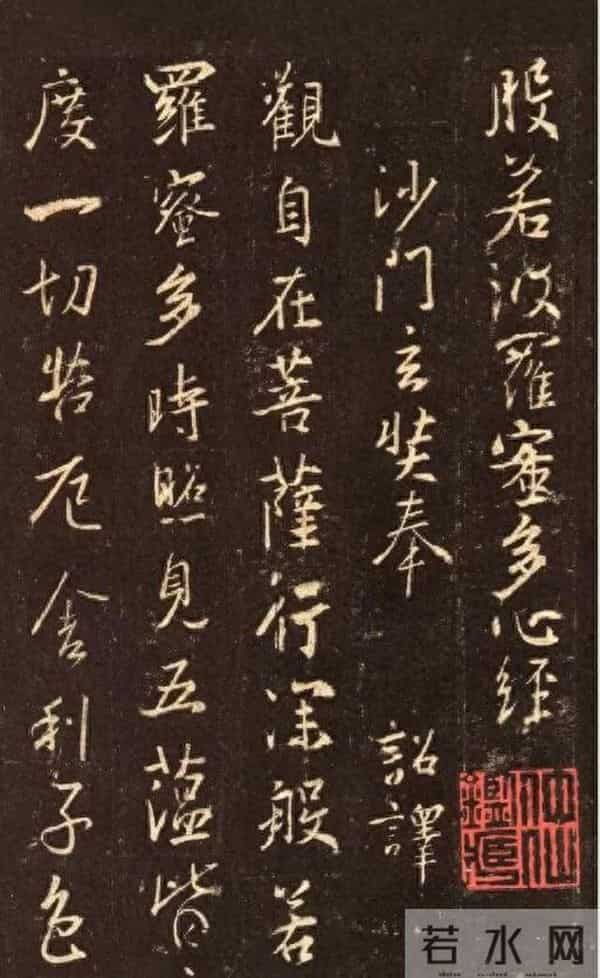 般若波羅蜜多心經
沙門玄奘奉 詔譯
觀自在菩薩行深般若
羅蜜多時照見五蘊皆
度一切苦厄舍利子色
若水网